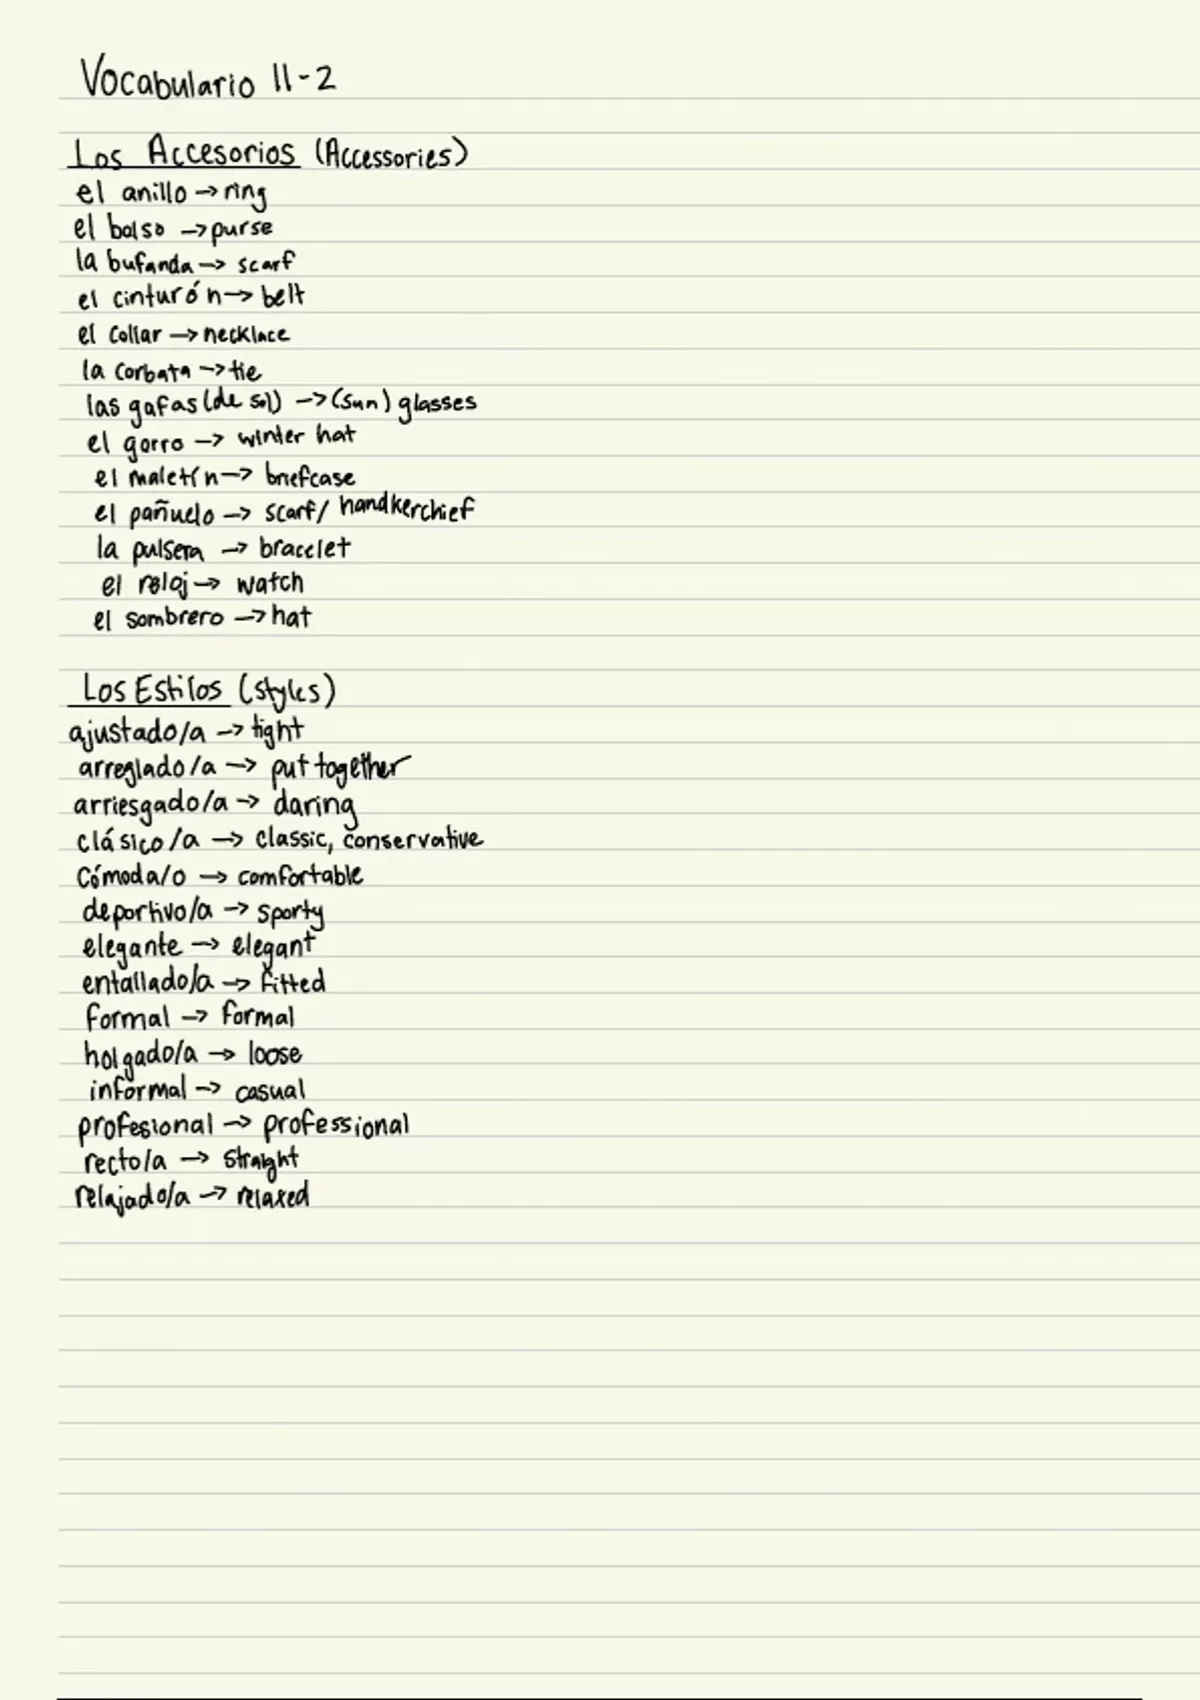 Vocabulario 11-2
Los Accesorios (Accessories)
el anillo → ring
el bolso → purse
la bufanda → scarf
el cinturón → belt
el collar → necklace
la corbata → tie
las gafas (de sol) → (sun) glasses
el gorro → winter hat
el maletín → briefcase
el pañuelo → scarf/ handkerchief
la pulsera → bracelet
el reloj → watch
el sombrero → hat
Los Estilos (styles)
ajustado/a → tight
arreglado/a → put together
arriesgado/a → daring
clásico/a → classic, conservative
Cómoda/o → comfortable
deportivo/a → sporty
elegante → elegant
entallado/a → fitted
formal → formal
holgado/a → loose
informal → casual
profesional → professional
recto/a → straight
relajado/a → relaxed